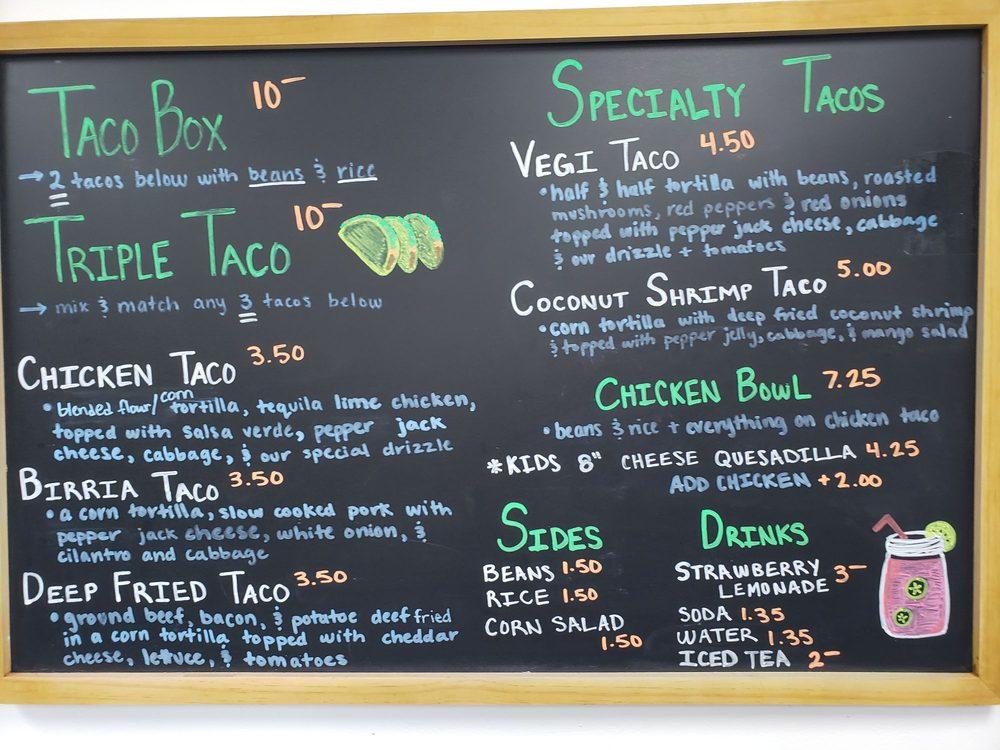 TACO BOX 10-
→ 2 tacos below with beans & rice
TRIPLE TACO 10-
→ mix & match any 3 tacos below
CHICKEN TACO 3.50
• blended flour/corn tortilla, tequila lime chicken,
topped with salsa verde, pepper jack
cheese, cabbage, & our special drizzle
BIRRIA TACO 3.50
• a corn tortilla, slow cooked pork with
pepper jack cheese, white onion, &
cilantro and cabbage
DEEP FRIED TACO 3.50
• ground beef, bacon, & potatoe deef fried
in a corn tortilla topped with cheddar
cheese, lettuce, & tomatoes
SPECIALTY TACOS
VEGI TACO 4.50
• half & half tortilla with beans, roasted
mushrooms, red peppers & red onions
topped with pepper jack cheese, cabbage
& our drizzle + tomatoes
COCONUT SHRIMP TACO 5.00
• corn tortilla with deep fried coconut shrimp
& topped with pepper jelly, cabbage, & mango salad
CHICKEN BOWL 7.25
• beans & rice + everything on chicken taco
*KIDS 8" CHEESE QUESADILLA 4.25
ADD CHICKEN +2.00
SIDES
BEANS 1.50
RICE 1.50
CORN SALAD
1.50
DRINKS
STRAWBERRY
LEMONADE 3-
SODA 1.35
WATER 1.35
ICED TEA 2-